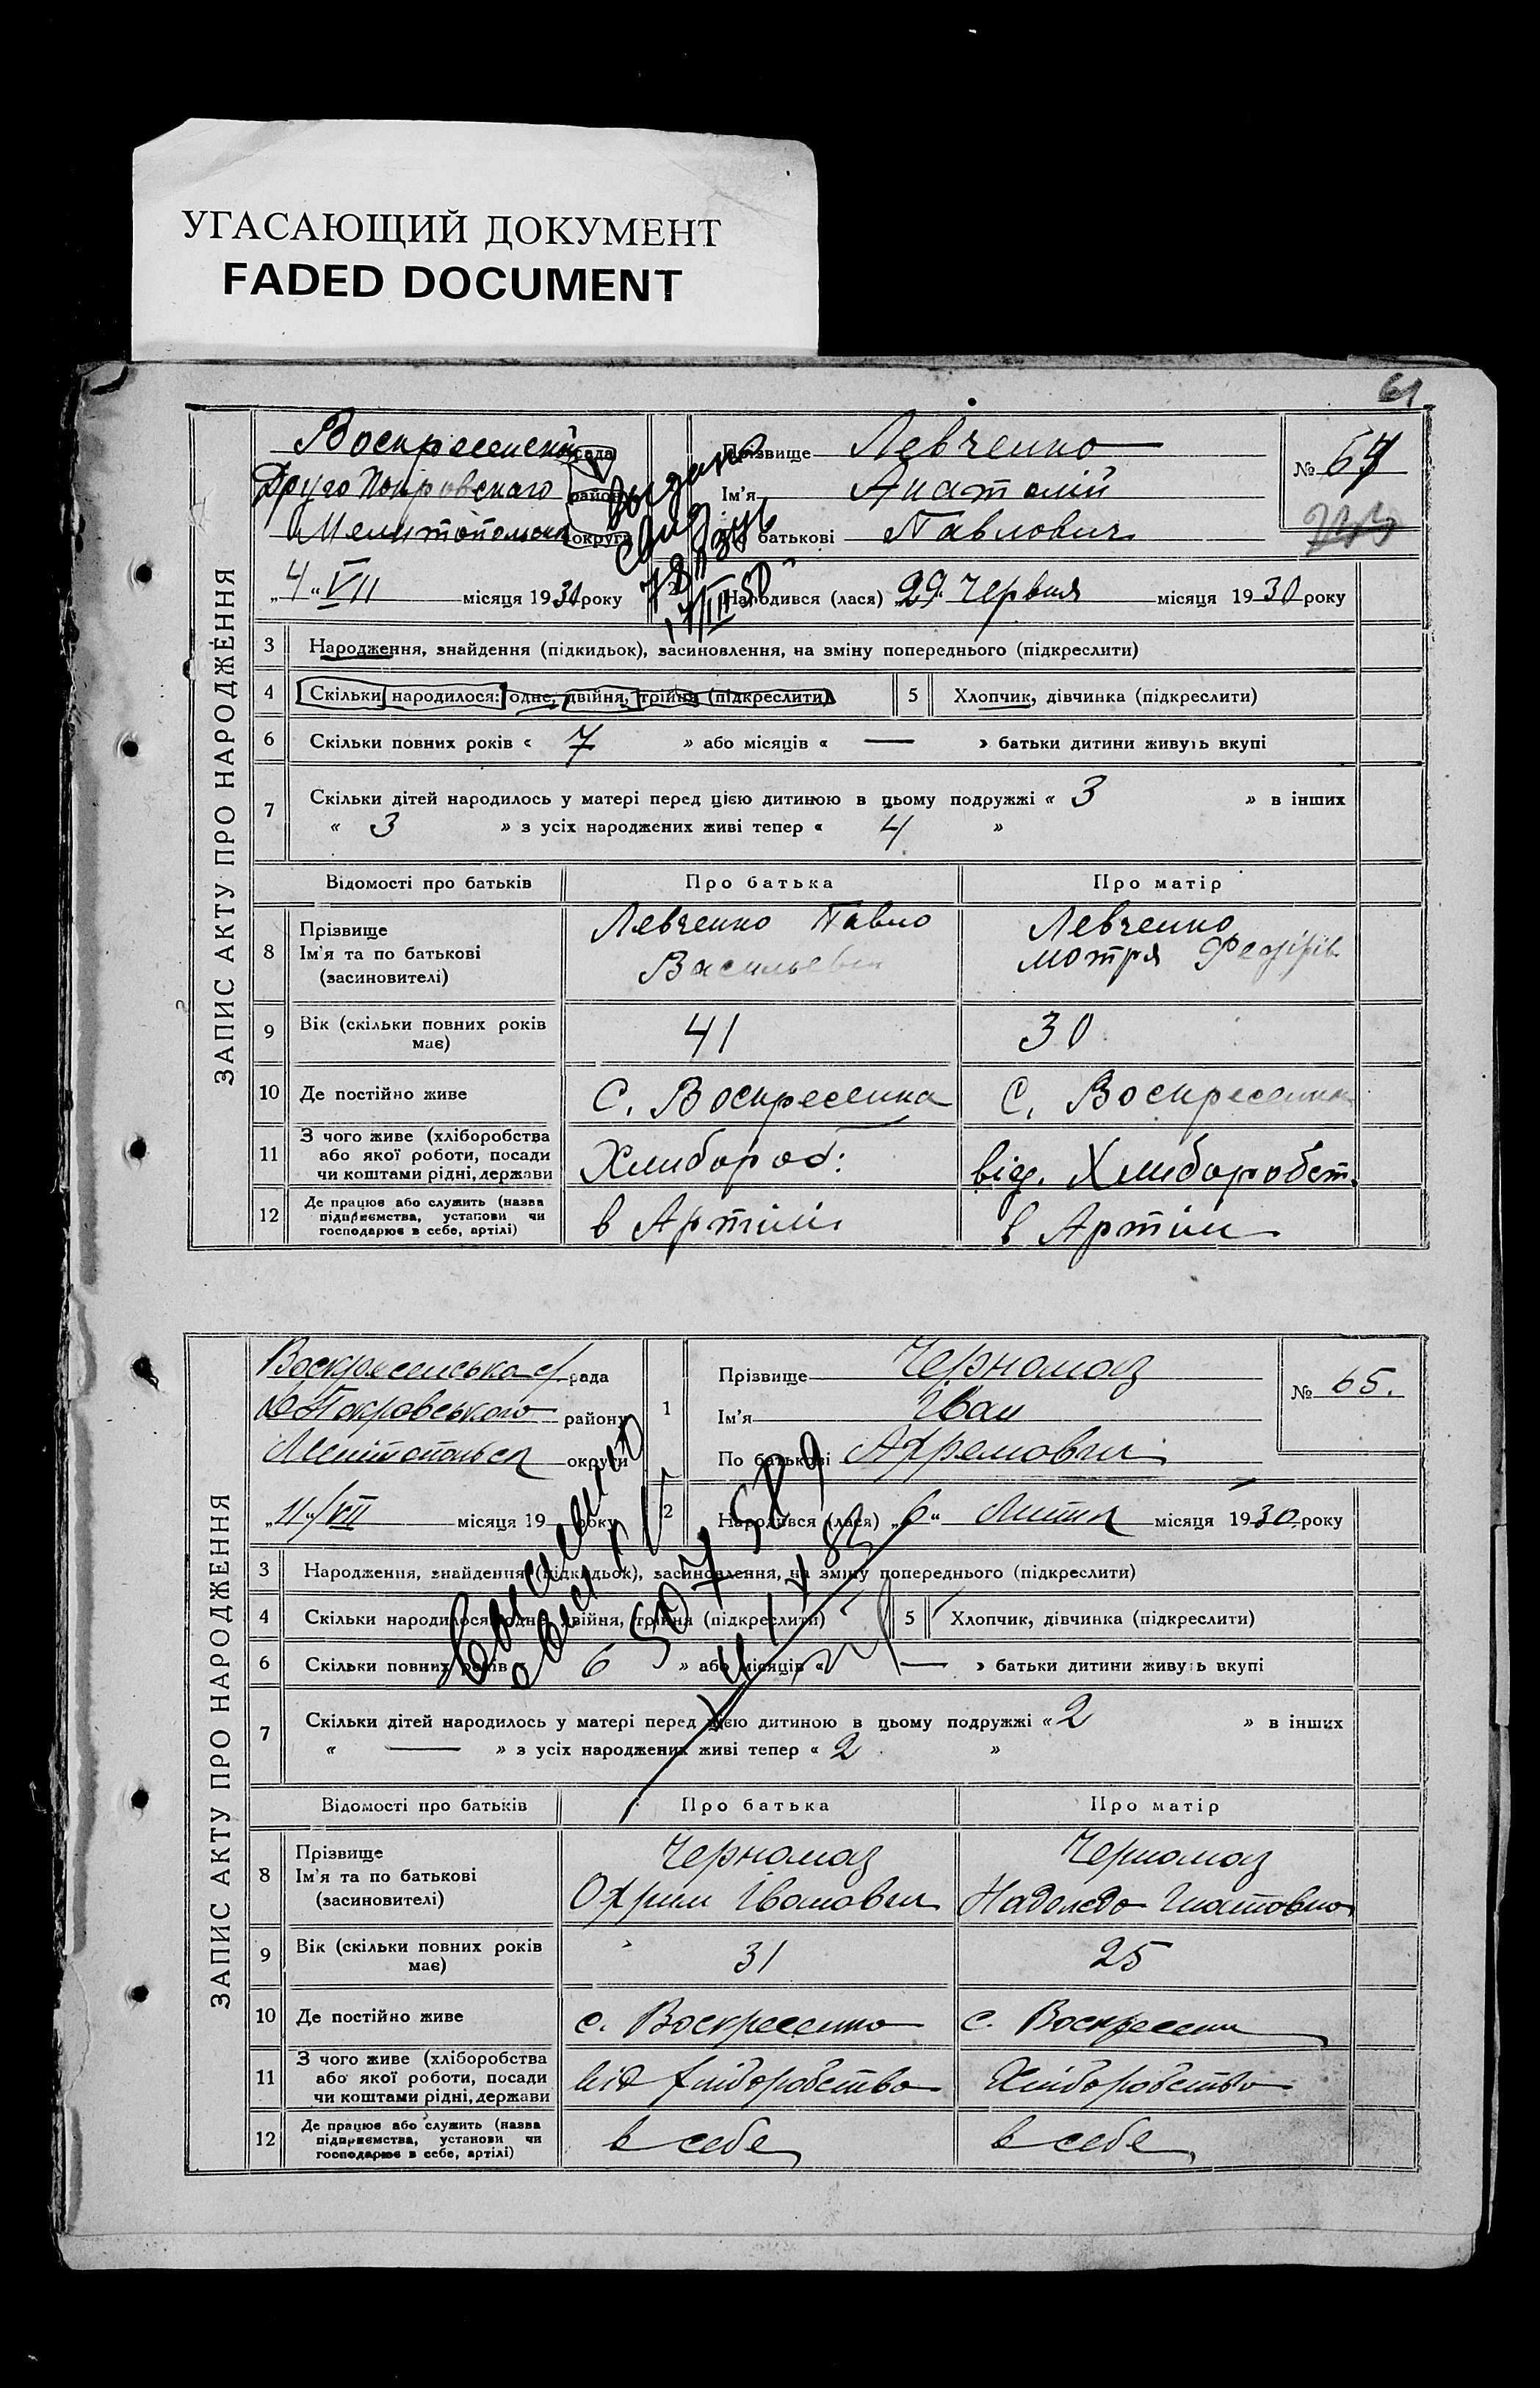 УГАСАЮЩИЙ ДОКУМЕНТ
FADED DOCUMENT
61
ЗАПИС АКТУ ПРО НАРОДЖЕННЯ
Воскресенськ рада
Друго Покровскаго району
Мелитопольск округи
„4“ VII місяця 1930 року
Прізвище Левченко
Ім'я Анатолій
батькові Павлович
№ 64
Народився (лася) „29“ Червня місяця 1930 року
3 Народження, знайдення (підкидьок), засиновлення, на зміну попереднього (підкреслити)
4 Скільки народилося: одне, двійня, трійня (підкреслити) 5 Хлопчик, дівчинка (підкреслити)
6 Скільки повних років « 7 » або місяців « — » батьки дитини живуть вкупі
7 Скільки дітей народилось у матері перед цією дитиною в цьому подружжі « 3 » в інших
« 3 » з усіх народжених живі тепер « 4 »
Відомості про батьків Про батька Про матір
8 Прізвище
Ім'я та по батькові
(засиновителі)
Левченко Павло
Васильевич
Левченко
Мотря
9 Вік (скільки повних років
має)
41
30
10 Де постійно живе С. Воскресенка С. Воскресенка
11 З чого живе (хліборобства
або якої роботи, посади
чи коштами рідні, держави
Хлибороб:
від. Хлиборобст.
12 Де працює або служить (назва
підприємства, установи чи
господарює в себе, артілі)
в Артілі
в Артіли
выдано
17/III 50
ЗАПИС АКТУ ПРО НАРОДЖЕННЯ
Воскресенська с/рада
Покровського району
Мелітопольск округи
„11“/VII місяця 19 року
1 Прізвище Черномаз
Ім'я Іван
По батькові Ахремович
№ 65.
2 Народився (лася) „6“ Липня місяця 1930 року
3 Народження, знайдення (підкидьок), засиновлення, на зміну попереднього (підкреслити)
4 Скільки народилося: одне, двійня, трійня (підкреслити) 5 Хлопчик, дівчинка (підкреслити)
6 Скільки повних років « 6 » або місяців « — » батьки дитини живуть вкупі
7 Скільки дітей народилось у матері перед цією дитиною в цьому подружжі « 2 » в інших
« — » з усіх народжених живі тепер « 2 »
Відомості про батьків Про батька Про матір
8 Прізвище
Ім'я та по батькові
(засиновителі)
Черномаз
Охрим Іванович
Черномаз
Надежда Игнатовна
9 Вік (скільки повних років
має)
31
25
10 Де постійно живе с. Воскресенка с. Воскресенка
11 З чого живе (хліборобства
або якої роботи, посади
чи коштами рідні, держави
від хліборобства
Хліборобства
12 Де працює або служить (назва
підприємства, установи чи
господарює в себе, артілі)
в себе
в себе